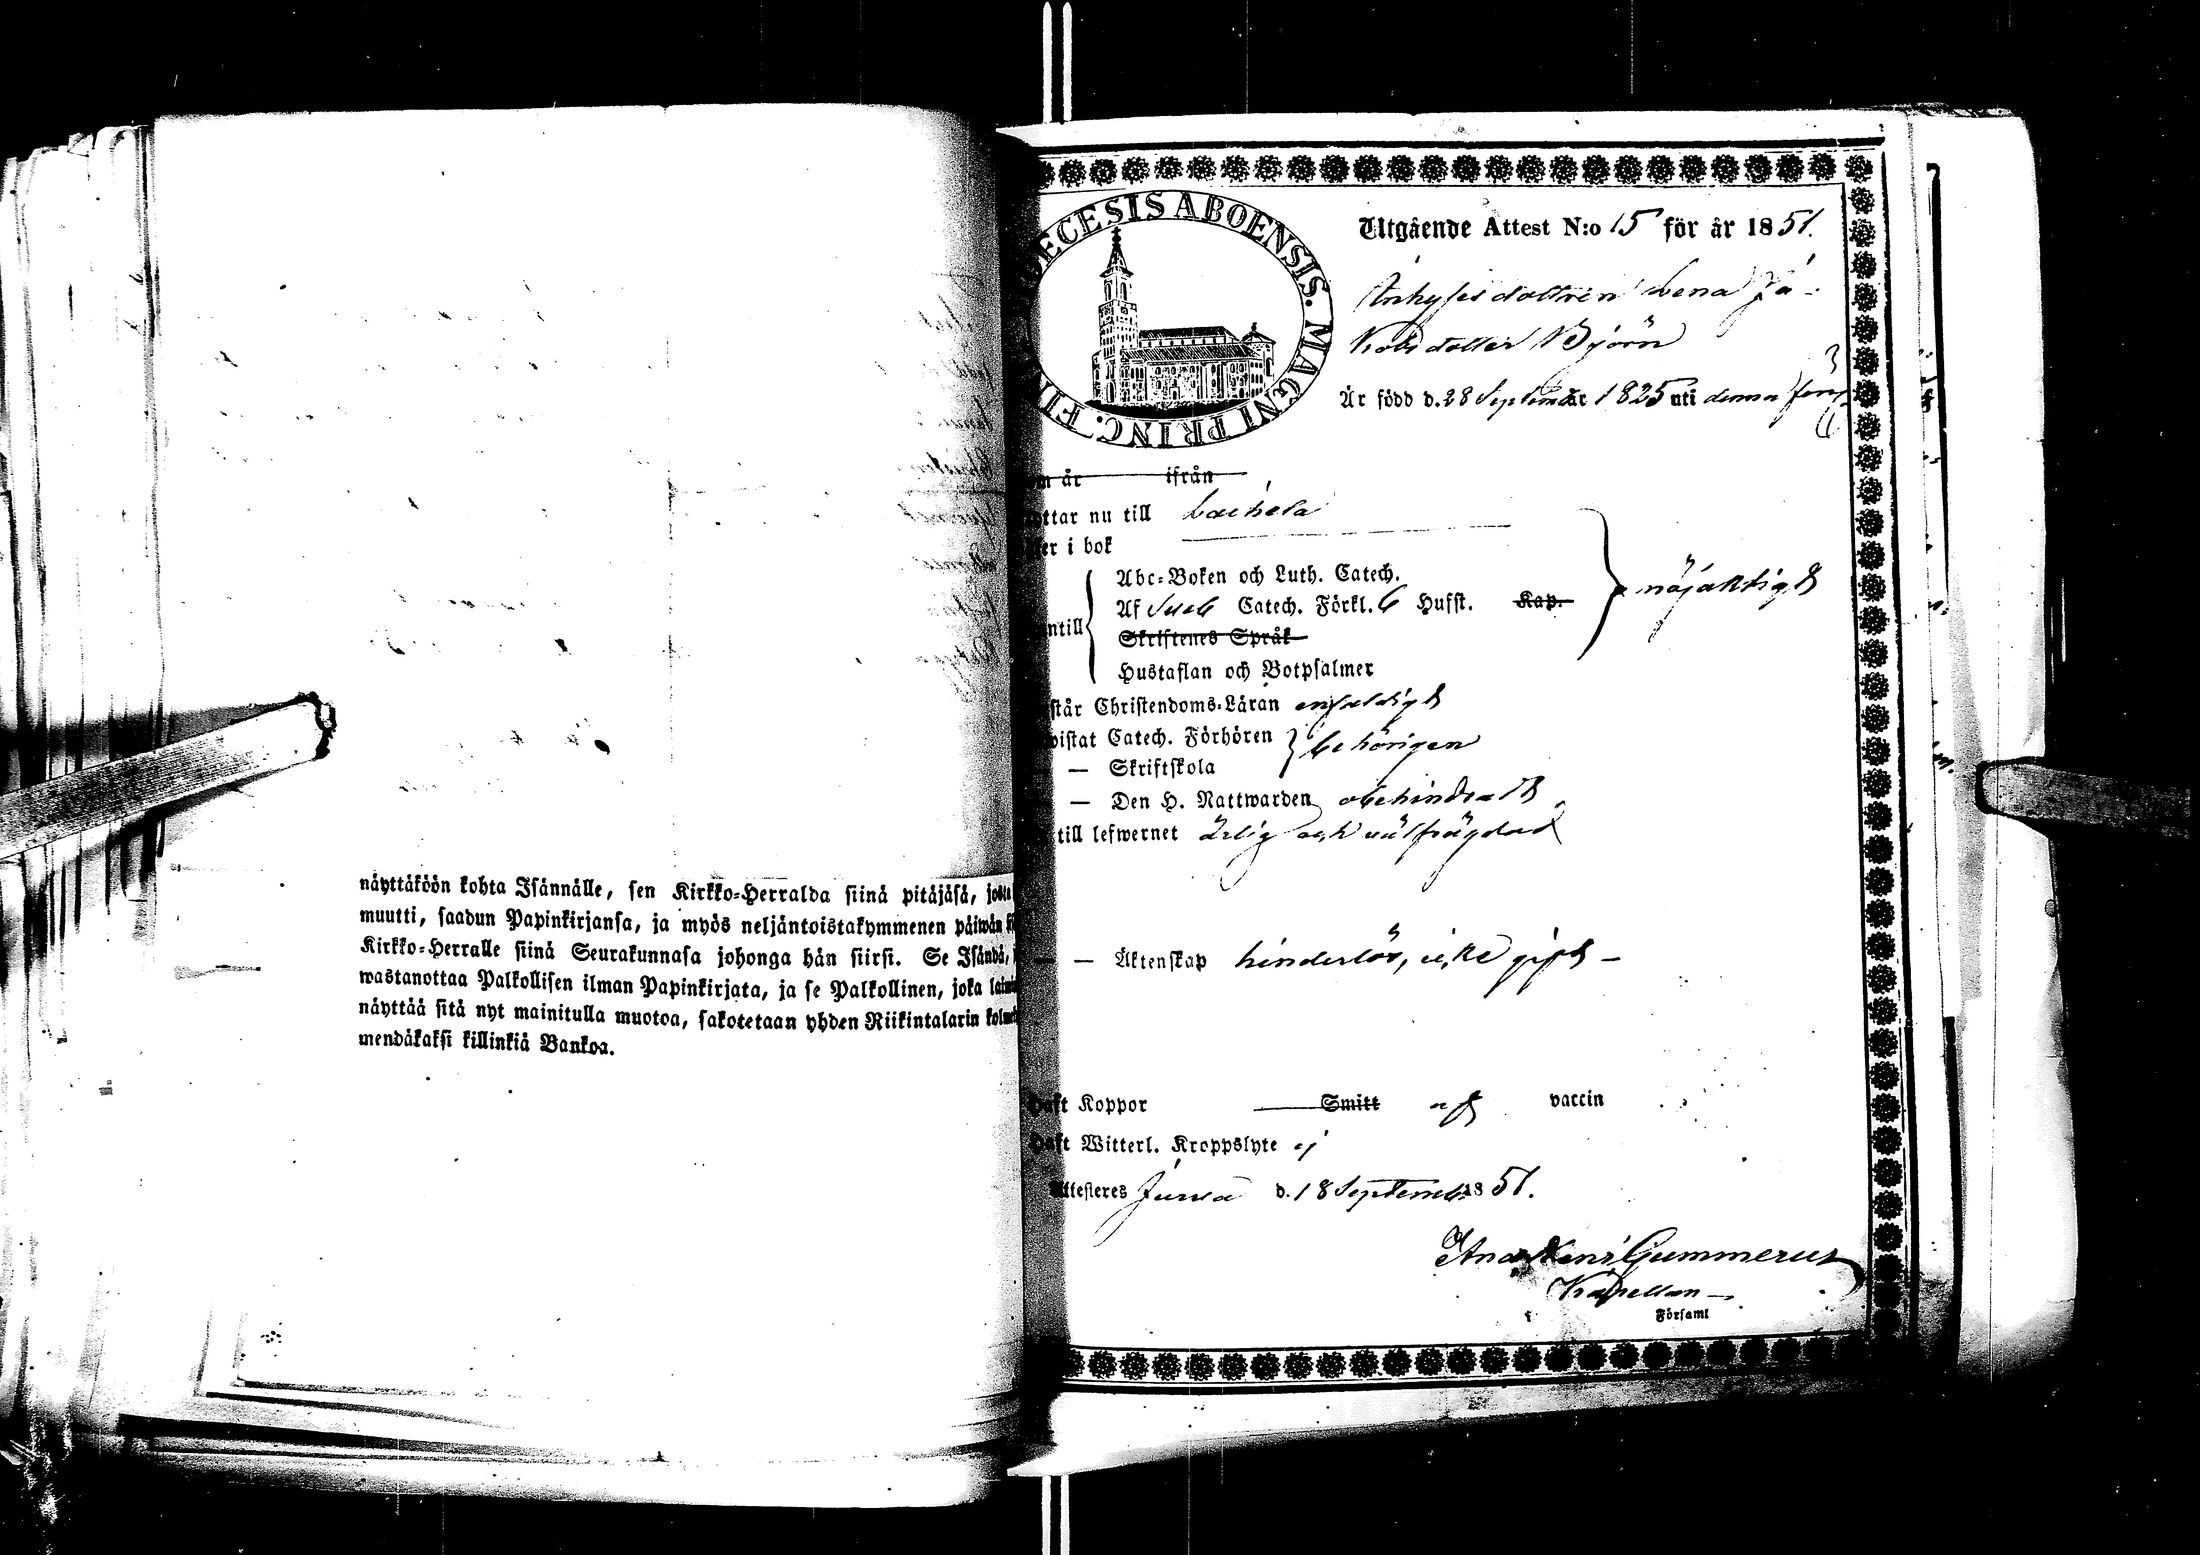 näyttäköön kohta Isännälle, sen Kirkko-Herralda siinä pitäjäsä, josta
muutti, saadun Papinkirjansa, ja myös neljäntoistakymmenen päiwän
Kirkko-Herralle siinä Seurakunnasa johonga hän siirsi. Se Isändä,
wastanottaa Palkollisen ilman Papinkirjata, ja se Palkollinen, joka
näyttää sitä nyt mainitulla muotoa, sakotetaan yhden Riikintalarin
mendäkaksi killinkiä Bankoa.
DECESIS ABOENSIS. MAGNI PRINC. FI
Utgående Attest N:o 15 för år 1851.
Inhyses dottren Lena Ja-
kobsdotter Björn
Är född d. 28 September 1825 uti denna förs.
om år ifrån
ottar nu till Laihela
er i bok
Abc-Boken och Luth. Catech.
Af Sveb Catech. Förkl. 6 Hufst. Kap. nöjaktigt
ntill
Skriftenes Språk
Hustaflan och Botpsalmer
står Christendoms-Läran enfaldigt
wistat Catech. Förhören behörigen
— Skriftskola
— Den H. Nattwarden obehindradt
till lefwernet ärlig och välfrägdad
— — Äktenskap hinderlös, icke gift —
Haft Koppor Smitt af vaccin
Haft Witterl. Kroppslyte ej
Attesteres Jurva d. 18 September 1851.
Gummerus
Kapellan
i Församl